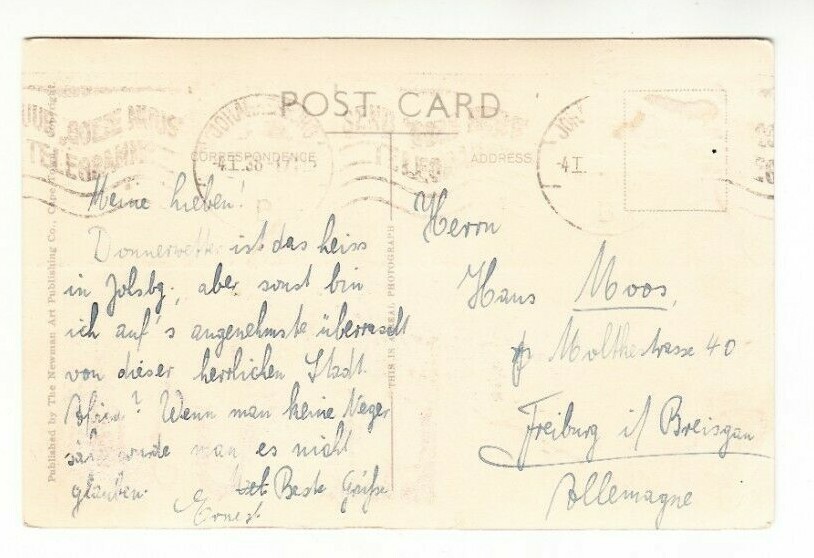 POST CARD
CORRESPONDENCE
ADDRESS
4.I.38
4 I.
TELEGRAMME
Meine Lieben!
Donnerwetter ist das heiss
in Johsbg., aber sonst bin
ich auf's angenehmste überrascht
von dieser herrlichen Stadt.
Africa? Wenn man keine Neger
säh würde man es nicht
glauben.
Beste Grüsse
Ernest
Herrn
Hans Moos,
Molthestrasse 40
Freiburg i/ Breisgau
Allemagne
Published by The Newman Art Publishing Co., Cape Town. Copyright.
THIS IS A REAL PHOTOGRAPH